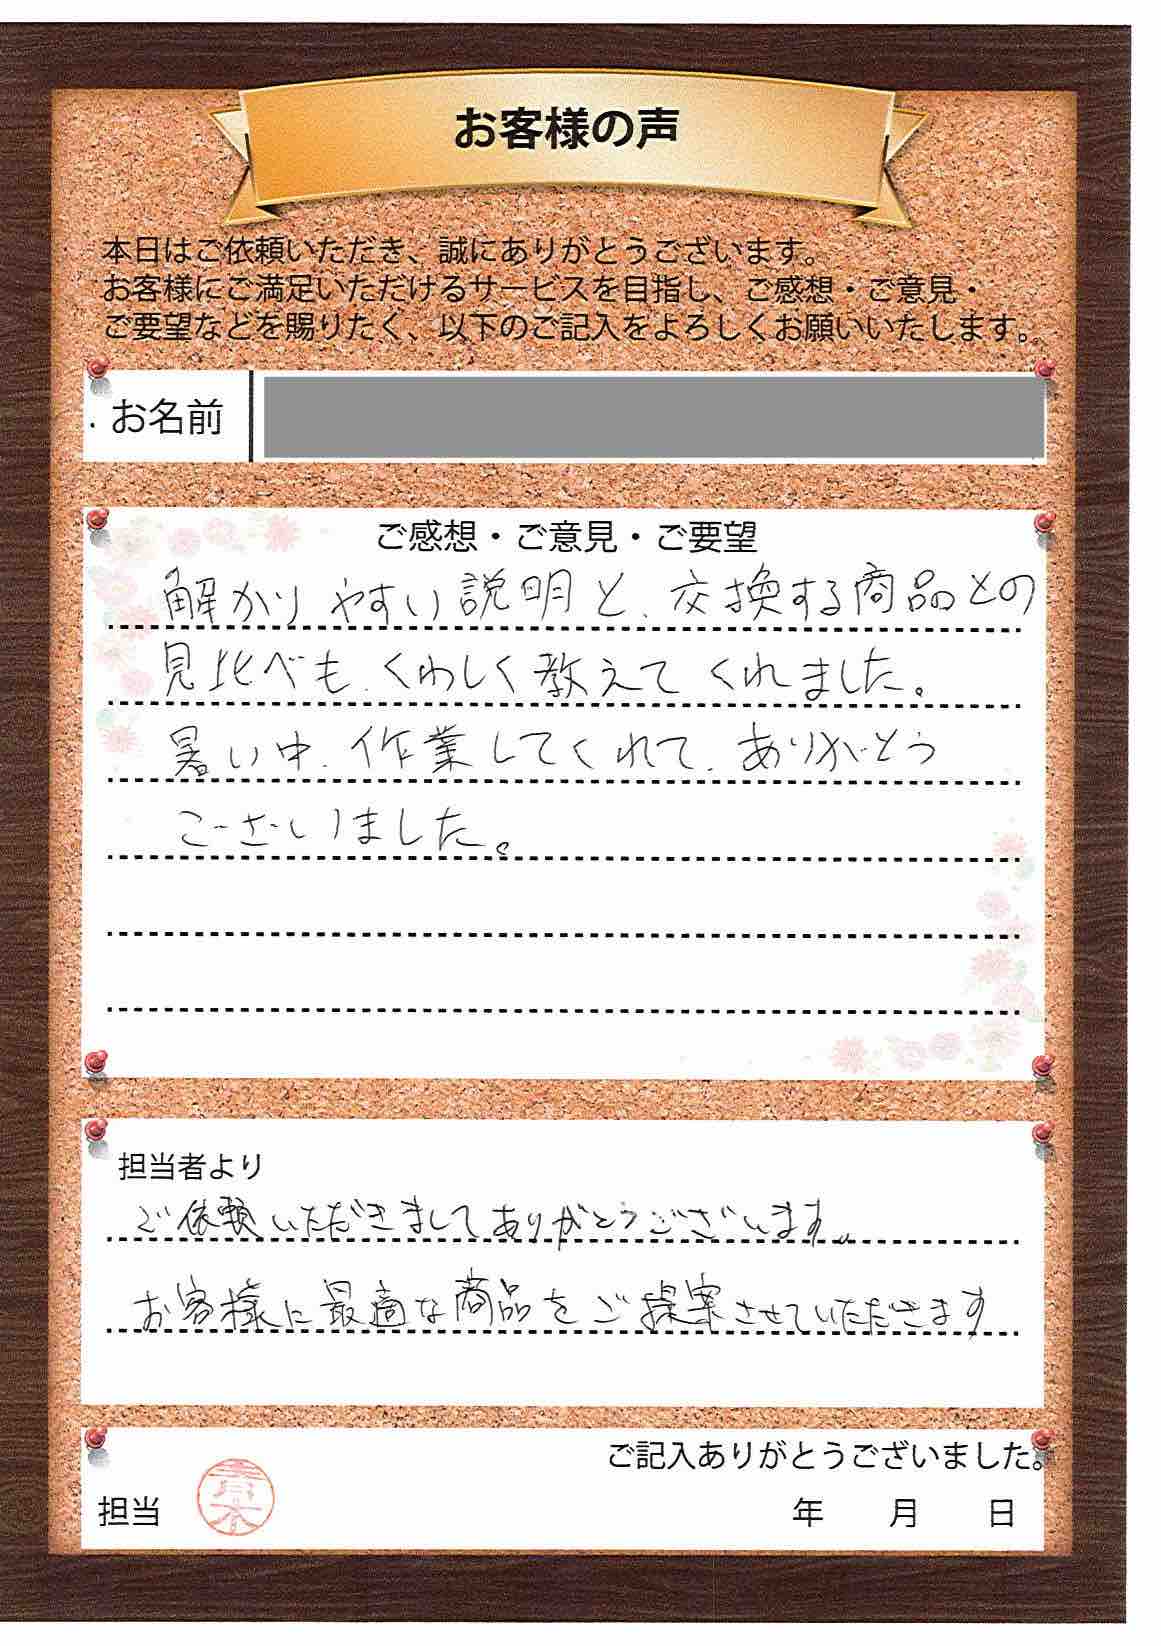 お客様の声
本日はご依頼いただき、誠にありがとうございます。
お客様にご満足いただけるサービスを目指し、ご感想・ご意見・
ご要望などを賜りたく、以下のご記入をよろしくお願いいたします。
お名前
ご感想・ご意見・ご要望
解かりやすい説明と、交換する商品との
見比べも、くわしく教えてくれました。
暑い中、作業してくれて、ありがとう
ございました。
担当者より
ご依頼いただきましてありがとうございます。
お客様に最適な商品をご提案させていただきます
ご記入ありがとうございました。
担当 青木
年 月 日